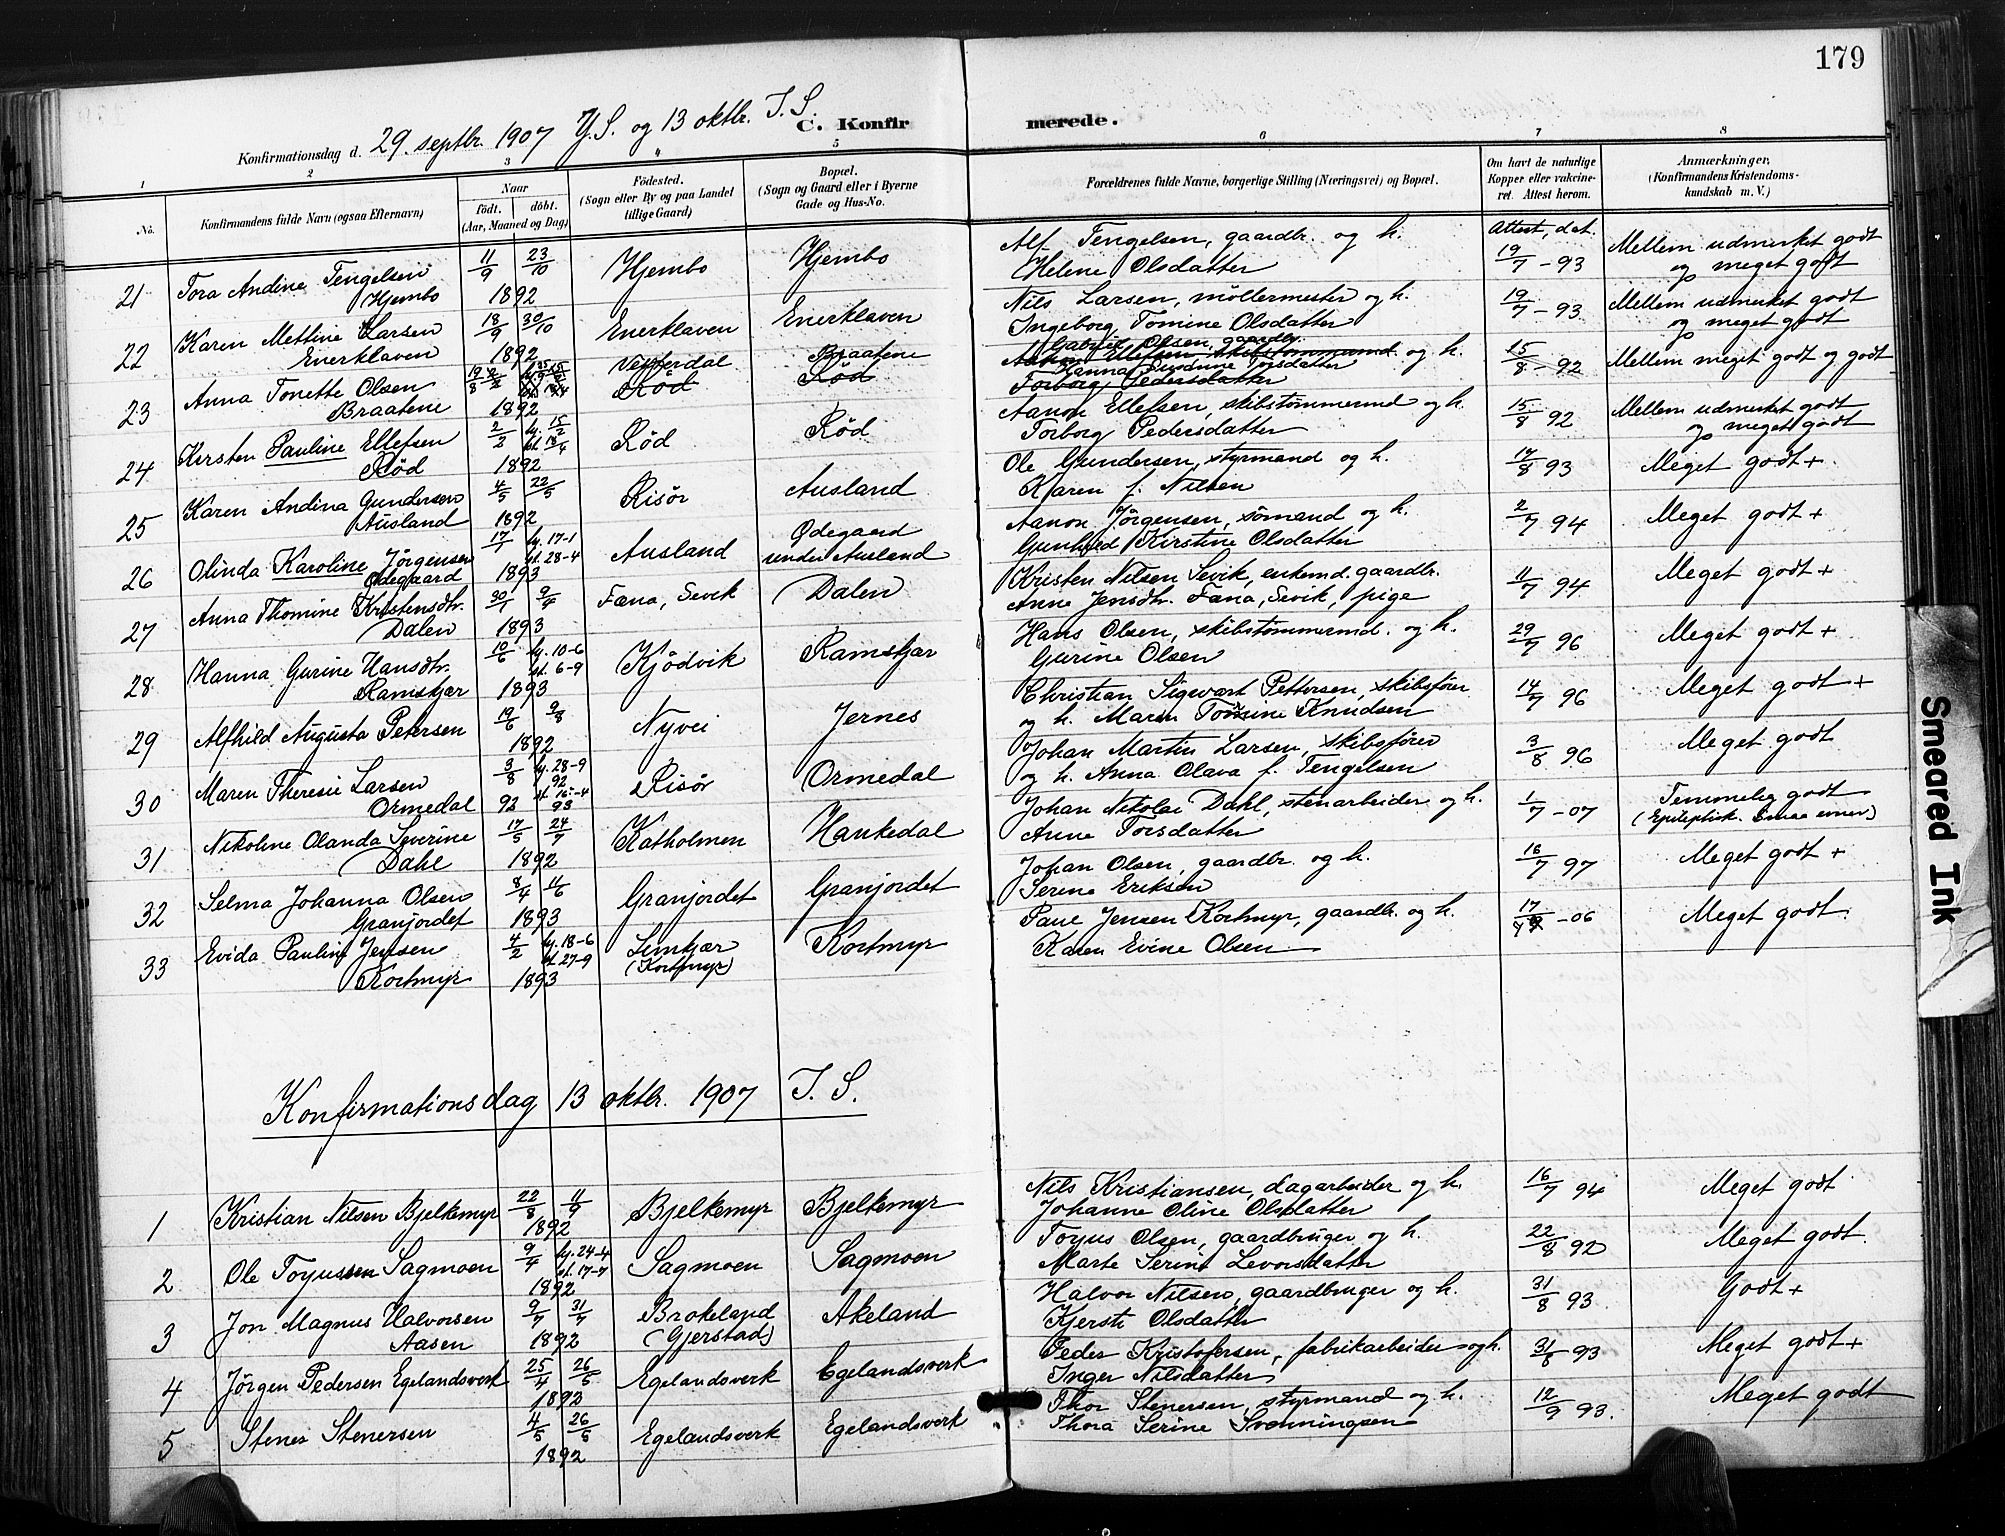 179
29. septbr. 1907 Y.S. og 13 oktbr. I.S.
C. Konfirmerede.
Konfirmationsdag d.
1 2 3 4 5 6 7 8
No.
Konfirmandens fulde Navn (ogsaa Efternavn)
Naar
født. døbt.
(Aar, Maaned og Dag)
Fødested.
(Sogn eller By og paa Landet
tillige Gaard)
Bopæl.
(Sogn og Gaard eller i Byerne
Gade og Hus-No.
Forældrenes fulde Navne, borgerlige Stilling (Næringsvei) og Bopæl.
Om havt de naturlige
Kopper eller vakcine-
ret. Attest herom.
Anmærkninger,
(Konfirmandens Kristendoms-
kundskab m. V.)
Attest, dat.
21 Tora Andine Tengelsen 11/9 23/10 Hjembo Hjembo Alf Tengelsen, gaardbr. og h. 19/7 - 93 Mellem udmerket godt
Hjembo 1892 Helene Olsdatter og meget godt
22 Karen Mettine Larsen 18/9 30/10 Enerklaven Enerklaven Nils Larsen, møllermester og h. 19/7 - 93 Mellem udmerket godt
Enerklaven 1892 Ingeborg Tomine Olsdatter og meget godt
23 Anna Tonette Olsen 19/8 Vefferdal Braatene Gabriel Olsen, gaardbr. og h. 15/8 - 92 Mellem meget godt og godt
Braatene 1892 Rød Rød Aanon Ellefsen skibstømmermd.
Hanna Susanne Torsdatter
Torborg Pedersdatter
24 Kirsten Pauline Ellefsen 2/2 hj. 15/2 Rød Rød Aanon Ellefsen, skibstømmermd og h. 15/8 92 Mellem udmerket godt
Rød 1892 Torborg Pedersdatter og meget godt
25 Karen Andina Gundersen 4/5 22/5 Risør Ausland Ole Gundersen, styrmand og h. 17/8 93 Meget godt +
Ausland 1892 Karen f. Nilsen
26 Olinda Karoline Jørgensen 17/1 hj. 17-1 Ausland Ødegaard Aanon Jørgensen, sømand og h. 2/7 94 Meget godt +
Ødegaard 1893 st. 28-4 under Ausland Gunhild Kirstine Olsdatter
27 Anna Thomine Kristensdtr. 30/1 9/4 Fæna, Sevik Dalen Kristen Nilsen Sevik, enkemd. gaardbr. 11/7 94 Meget godt +
Dalen 1893 Anne Jensdtr. Fæna, Sevik, pige
28 Hanna Gurine Hansdtr. 10/6 hj. 10-6 Kjødvik Ramskjær Hans Olsen, skibstømmermd. og h. 29/7 96 Meget godt +
Ramskjær 1893 st. 6-9 Gurine Olsen
29 Alfhild Augusta Petersen 19/6 9/8 Nyvei Jernes Christian Sigwart Pettersen, skibsfører 14/7 96 Meget godt +
1892 og h. Maren Tomine Knudsen
30 Maren Theresie Larsen 3/8 hj. 28-9 92 Risør Ormedal Johan Martin Larsen, skibsfører 3/8 96 Meget godt
Ormedal 92 st. 16-4 93 og h. Anna Olava f. Tengelsen
31 Nikoline Olanda Severine 17/5 24/7 Katholmen Haukedal Johan Nikolai Dahl, stenarbeider og h. 1/7 - 07 Temmelig godt
Dahl 1892 Anne Torsdatter (Epileptisk. Smaa evner)
32 Selma Johanna Olsen 8/4 11/6 Granjordet Granjordet Johan Olsen, gaardbr. og h. 16/7 97 Meget godt +
Granjordet 1893 Serine Eriksen
33 Evida Pauline Jensen 4/2 hj. 18-6 Lemkjær Kortmyr Paul Jensen Kortmyr, gaardbr. og h. 17 - 06 Meget godt
Kortmyr 1893 st. 27-9 (Kortmyr) Karen Evine Olsen
Konfirmationsdag 13 oktbr. 1907 I. S.
1 Kristian Nilsen Bjelkemyr 22/8 11/9 Bjelkemyr Bjelkemyr Nils Kristiansen, dagarbeider og h. 16/7 94 Meget godt
1892 Johanne Oline Olsdatter
2 Ole Toyussen Sagmoen 9/4 hj. 24-4 Sagmoen Sagmoen Toyus Olsen, gaardbruger og h. 22/8 92 Meget godt.
1892 st. 17-7 Marte Serine Levorsdatter
3 Jon Magnus Halvorsen 9/7 31/7 Brokeland Akeland Halvor Nilsen, gaardbruger og h. 31/8 93. Godt +
Aasen 1892 (Gjerstad) Kjersti Olsdatter
4 Jørgen Pedersen Egelandsverk 25/4 26/5 Egelandsverk Egelandsverk Peder Kristofersen, fabrikarbeider og h. 31/8 93 Meget godt +
1892 Inger Nilsdatter
5 Stener Stenersen 4/5 26/5 Egelandsverk Egelandsverk Thor Stenersen, styrmand og h. 12/9 93. Meget godt
1892 Thora Serine Svenningsen
Smeared Ink